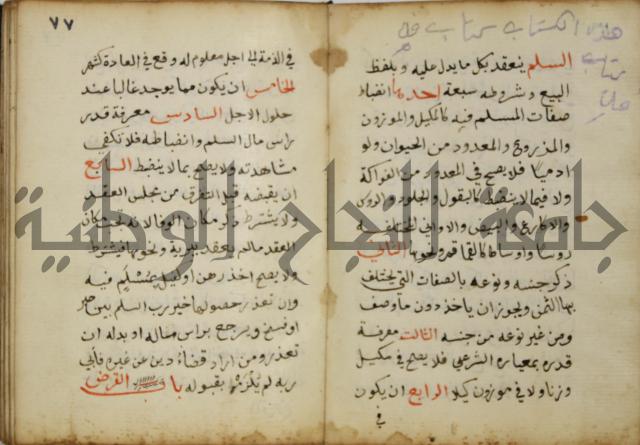 هذا الكتاب كتاب
كتاب
السلم ينعقد بكل ما يدل عليه وبلفظ
البيع وشروطه سبعة احدها انضباط
صفات المسلم فيه كالمكيل والموزون
والمذروع والمعدود من الحيوان ولو
ادميا فلا يصح في المعدود من الفواكة
ولا فيما لا ينضبط كالبقول والجلود والروس
والاكارع والبيض والاواني المختلفة
روسا واوساطا كالقماقم ونحوها الثاني
ذكر جنسه ونوعه بالصفات التي يختلف
بها الثمن ويجوز ان ياخذ دون ما وصف
ومن غير نوعه من جنسه الثالث معرفة
قدره بمعياره الشرعي فلا يصح في مكيل
وزنا ولا في موزون كيلا الرابع ان يكون
في
٧٧
في الذمة الى اجل معلوم له وقع في العادة كشهر
الخامس ان يكون مما يوجد غالبا عند
حلول الاجل السادس معرفة قدر
راس مال السلم وانضباطه فلا تكفي
مشاهدته ولا يصح بما لا ينضبط السابع
ان يقبضه قبل التفرق من مجلس العقد
ولا يشترط ذكر مكان الوفا لانه يجب مكان
العقد مالم يعقد ببرية ونحوها فيشترط
ولا يصح اخذ رهن او كفيل بمسلم فيه
وان تعذر حصوله خير رب السلم بين صبر
او فسخ ويرجع براس ماله او بدله ان
تعذر ومن اراد قضاء دين عن غيره فابى
ربه لم يلزم بقبوله باب القرض
جامعة النجاح الوطنية